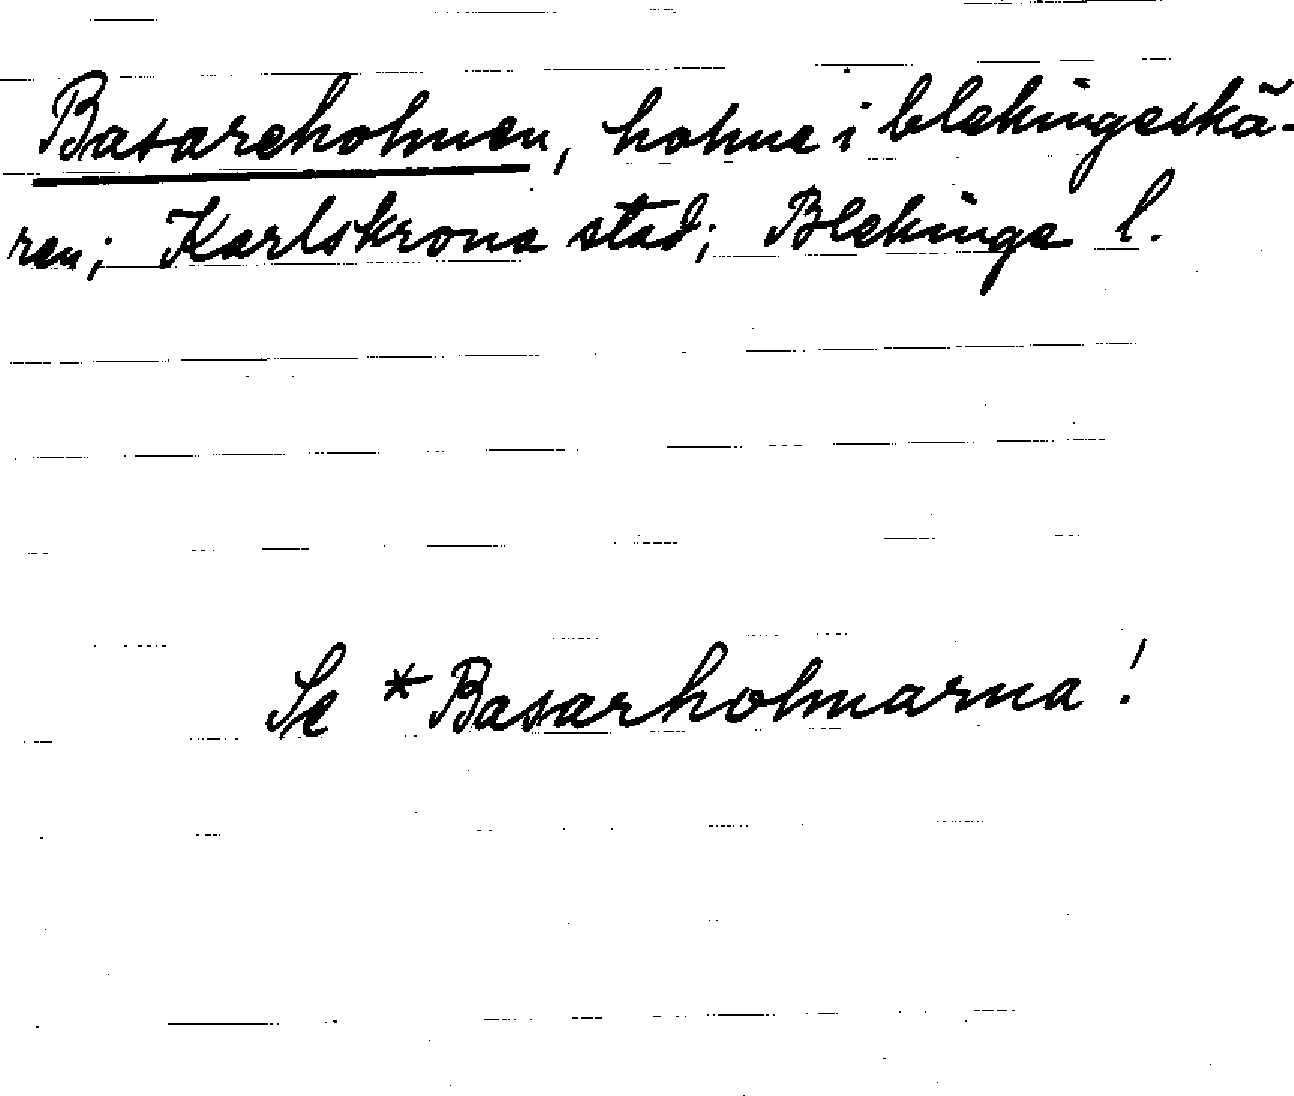 Basareholmen, holme i blekingeskä-
ren; Karlskrona stad; Blekinge l.
Se *Basarholmarna!